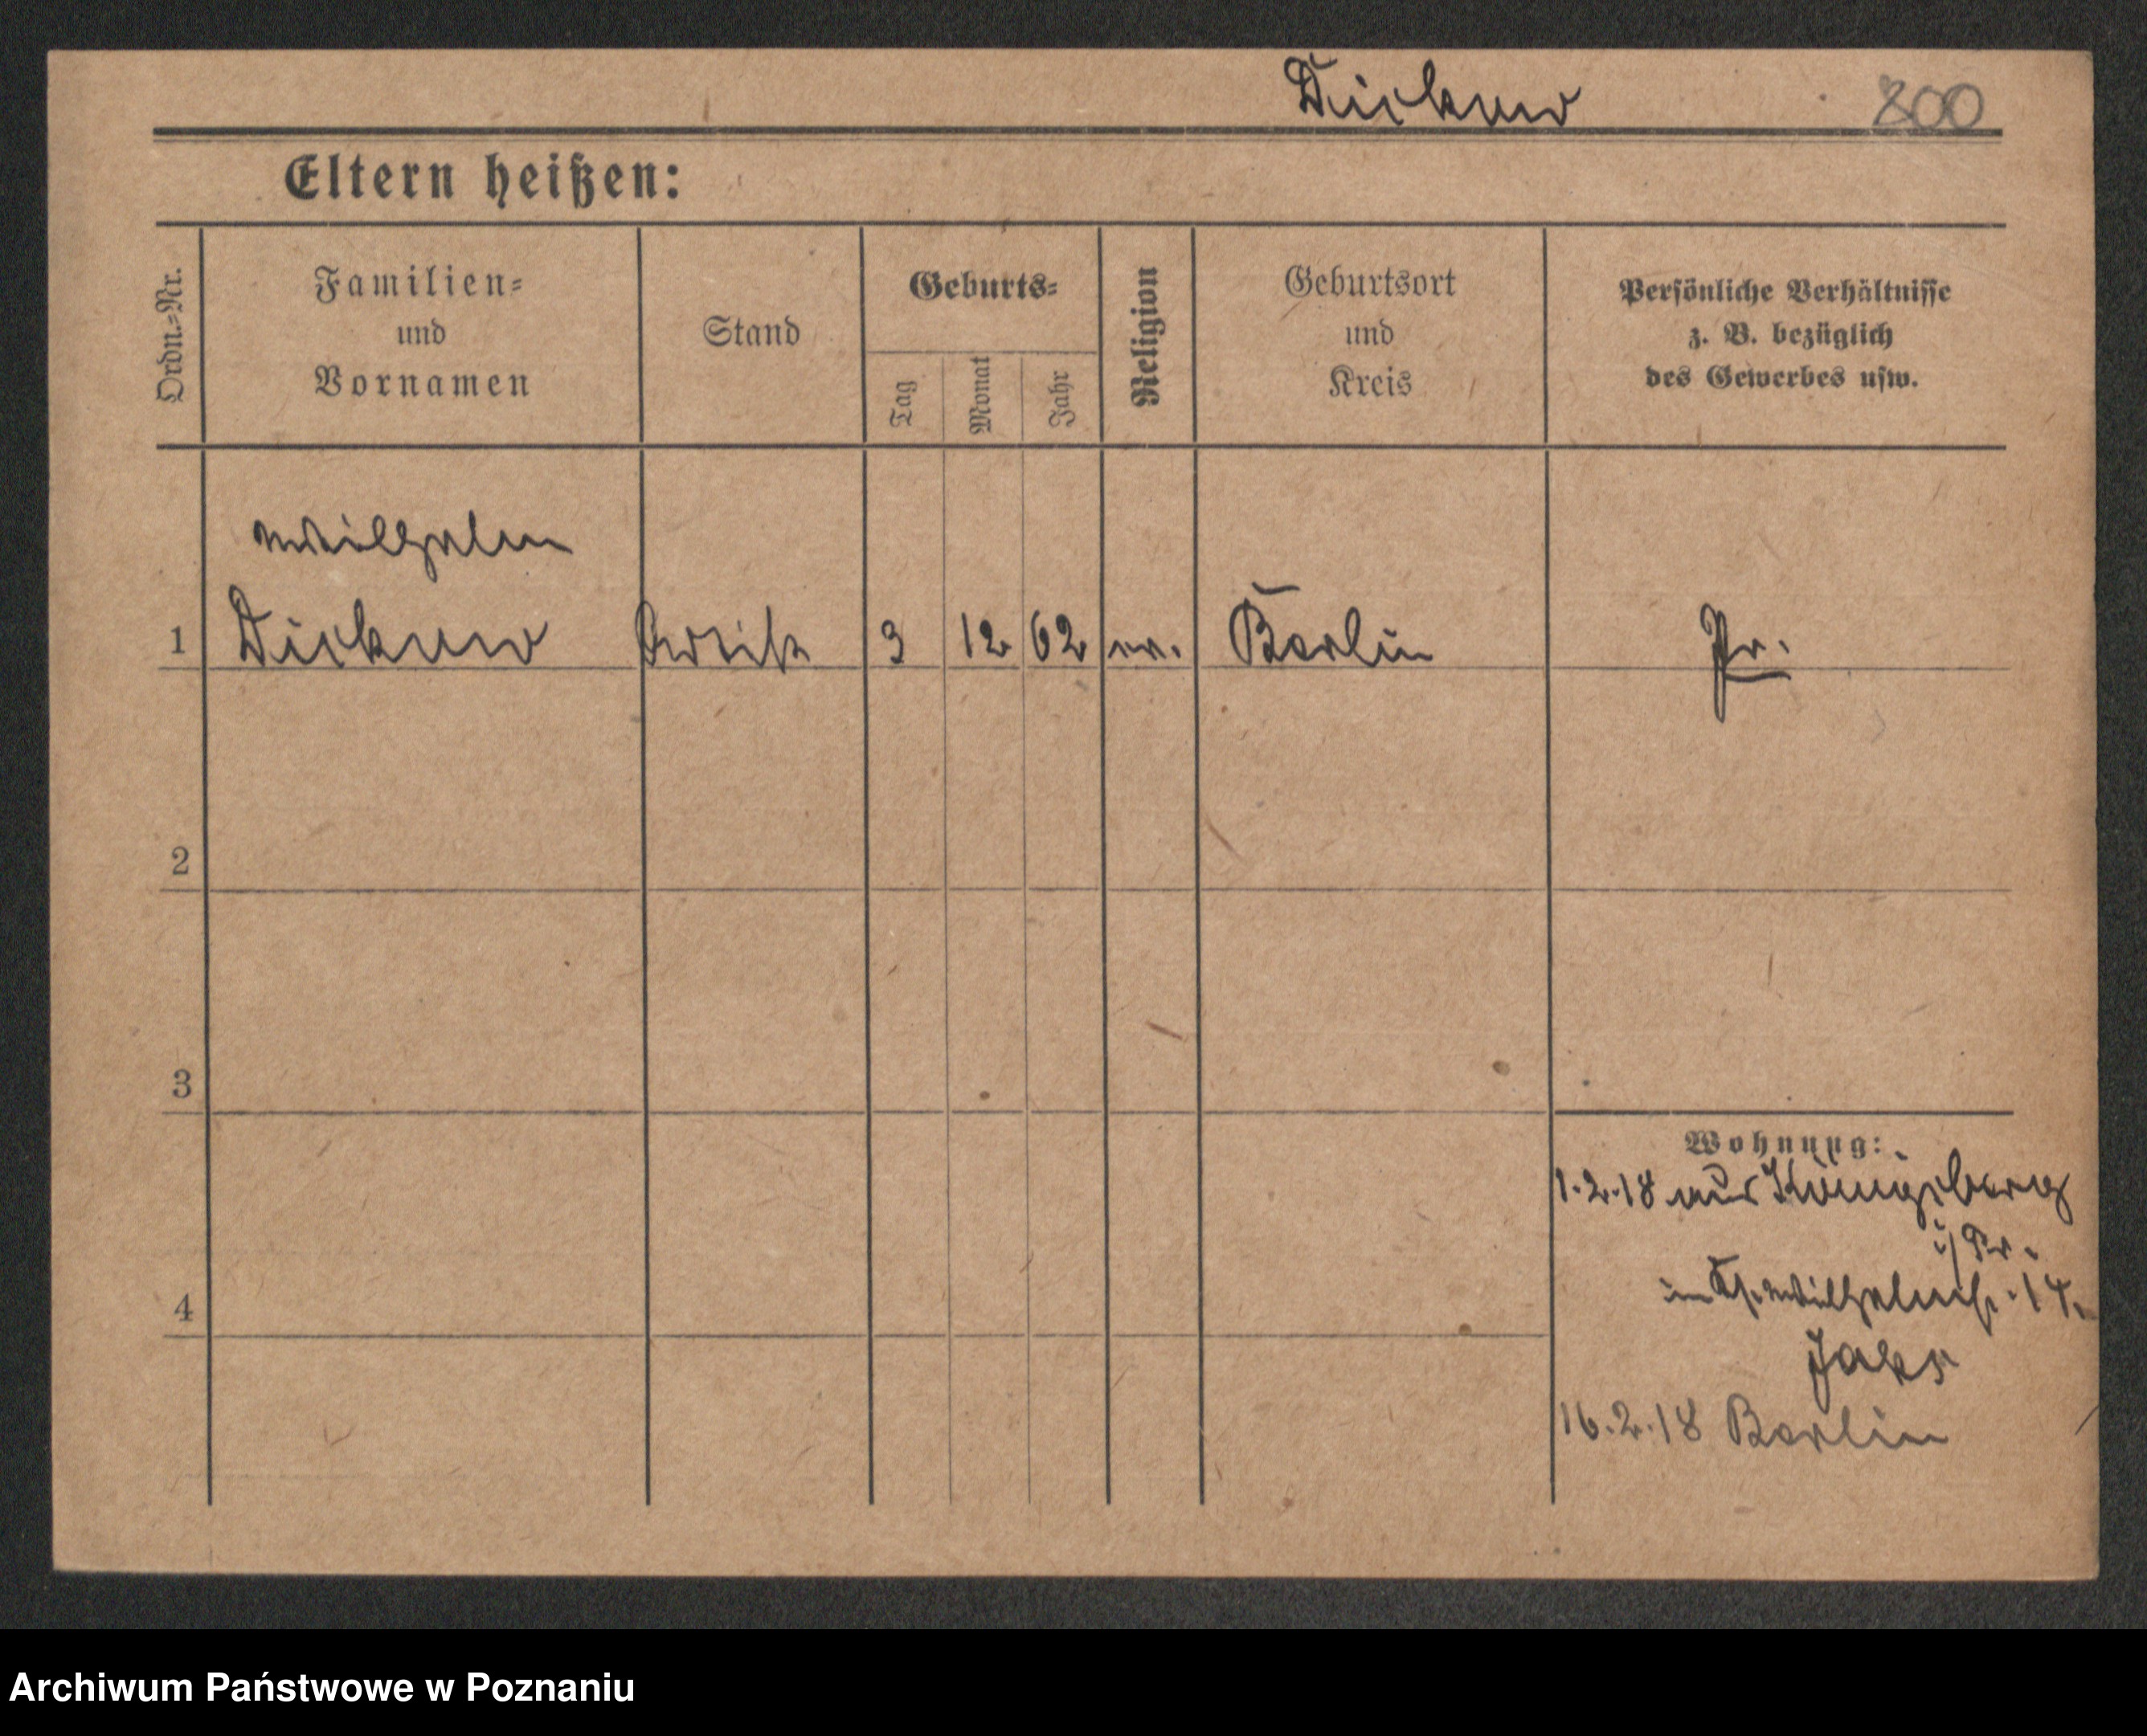 Dickow 200
Eltern heißen:
Ordn.-Nr.
Familien-
und
Vornamen
Stand
Geburts-
Tag
Monat
Jahr
Religion
Geburtsort
und
Kreis
Persönliche Verhältnisse
z. B. bezüglich
des Gewerbes usw.
Wilhelm
1 Dickow Artist 3 12 62 ev. Berlin Pr.
2
3
4
Wohnung:
1.2.18 aus Königsberg
i/Pr.
in Wilhelmstr. 14.
16.2.18 Berlin
Archiwum Państwowe w Poznaniu